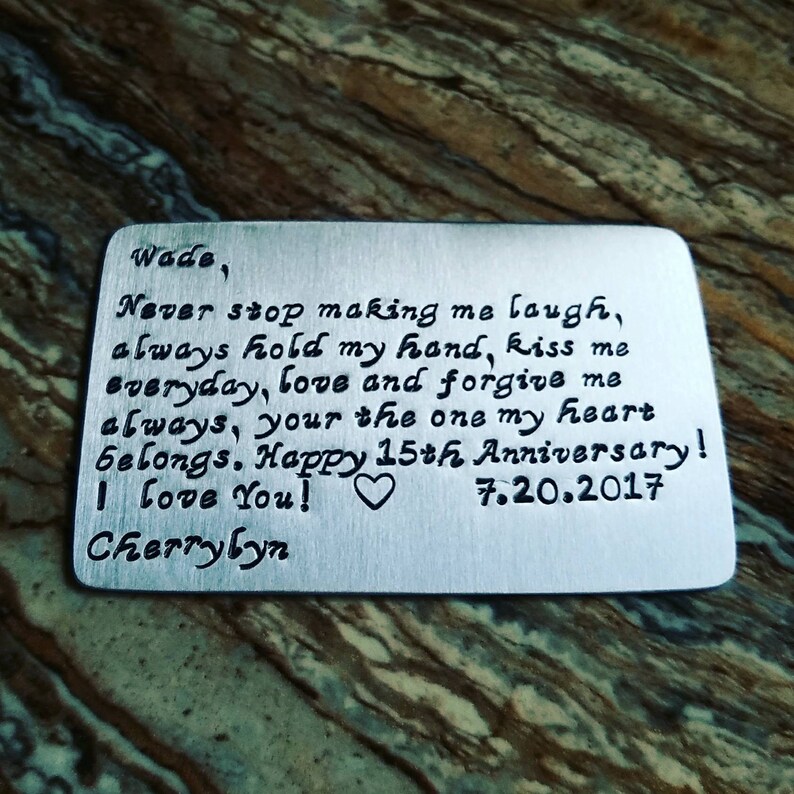 Wade,
Never stop making me laugh,
always hold my hand, kiss me
everyday, love and forgive me
always, your the one my heart
belongs. Happy 15th Anniversary!
I love You! ♡ 7.20.2017
Cherrylyn